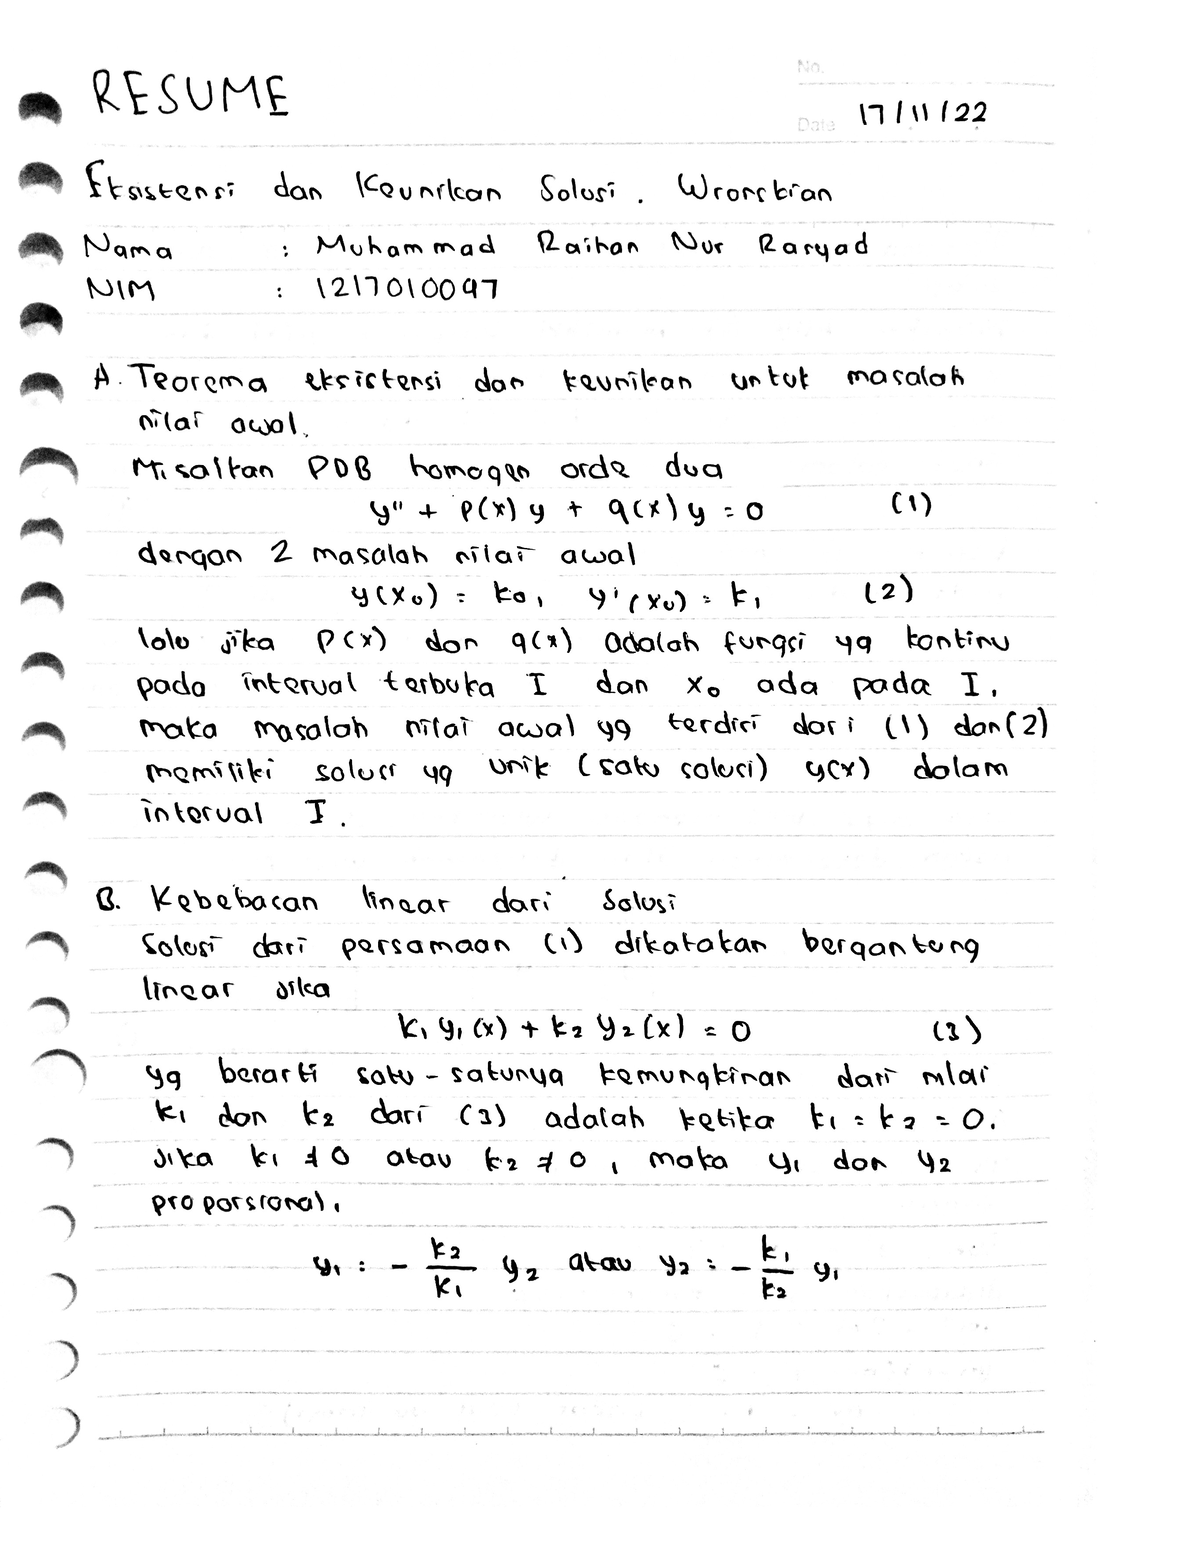 RESUME
No.
Date 17/11/22
Eksistensi dan Keunikan Solusi. Wronskian
Nama : Muhammad Raihan Nur Rasyad
NIM : 1217010097
A. Teorema eksistensi dan keunikan untuk masalah
nilai awal.
Misalkan PDB homogen orde dua
y" + p(x) y + q(x) y = 0 (1)
dengan 2 masalah nilai awal
y(x₀) = k₀, y'(x₀) = k₁ (2)
lalu jika p(x) dan q(x) adalah fungsi yg kontinu
pada interval terbuka I dan x₀ ada pada I,
maka masalah nilai awal yg terdiri dari (1) dan (2)
memiliki solusi yg unik (satu solusi) y(x) dalam
interval I.
B. Kebebasan linear dari solusi
Solusi dari persamaan (1) dikatakan bergantung
linear jika
k₁ y₁(x) + k₂ y₂(x) = 0 (3)
yg berarti satu-satunya kemungkinan dari nilai
k₁ dan k₂ dari (3) adalah ketika k₁ = k₂ = 0.
Jika k₁ ≠ 0 atau k₂ ≠ 0, maka y₁ dan y₂
proporsional.
y₁ = - k₂/k₁ y₂ atau y₂ = - k₁/k₂ y₁